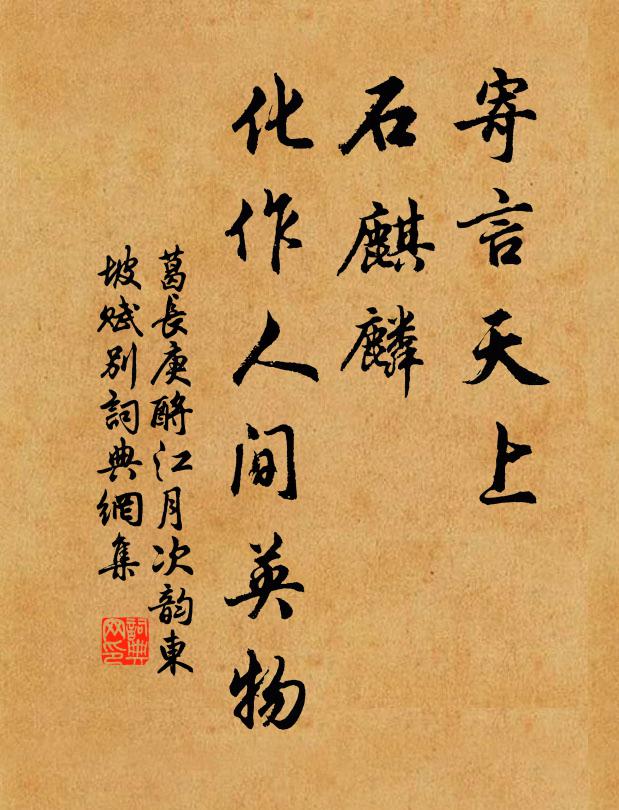 寄言天上
石麒麟
化作人间英物
葛長庚酹江月次韵東
坡赋别詞典網集
詞典
网印